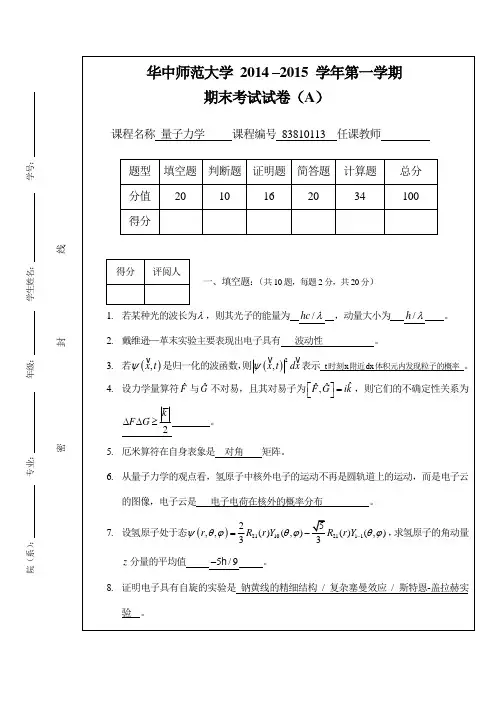 华中师范大学 2014 –2015 学年第一学期
期末考试试卷（A）
课程名称 量子力学 课程编号 83810113 任课教师
题型 填空题 判断题 证明题 简答题 计算题 总分
分值 20 10 16 20 34 100
得分
得分 评阅人
一、填空题:（共10题，每题2分，共20分）
1. 若某种光的波长为λ，则其光子的能量为 hc/λ ，动量大小为 h/λ 。
2. 戴维逊—革末实验主要表现出电子具有 波动性 。
3. 若ψ(x,t)是归一化的波函数,则|ψ(x,t)|² dx表示 t时刻x附近dx体积元内发现粒子的概率 。
4. 设力学量算符F̂与Ĝ不对易，且其对易子为[F̂,Ĝ]=ik̂，则它们的不确定性关系为
ΔFΔG ≥ k̄/2 。
5. 厄米算符在自身表象是 对角 矩阵。
6. 从量子力学的观点看，氢原子中核外电子的运动不再是圆轨道上的运动，而是电子云
的图像，电子云是 电子电荷在核外的概率分布 。
7. 设氢原子处于态ψ(r,θ,φ)=2/3 R₂₁(r)Y₁₀(θ,φ)−√5/3 R₂₁(r)Y₁₋₁(θ,φ)，求氢原子的角动量
z分量的平均值 −5h/9 。
8. 证明电子具有自旋的实验是 钠黄线的精细结构 / 复杂塞曼效应 / 斯特恩-盖拉赫实
验 。
院（系）： 专业： 年级： 学生姓名： 学号：
密 封 线